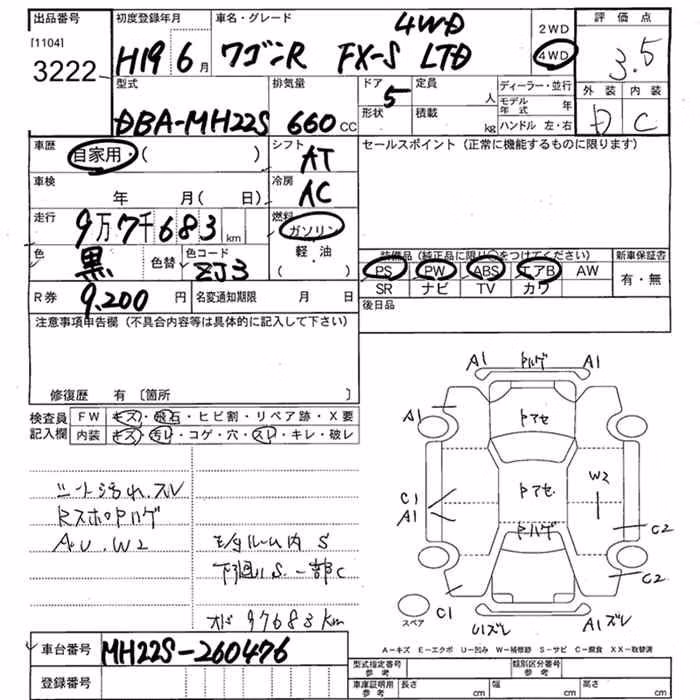 出品番号
[1104]
3222
初度登録年月
H19 6月
車名・グレード
4WD
ワゴンR FX-S LTD
2WD
4WD
評価点
3.5
外装 内装
D C
型式
DBA-MH22S
排気量
660 CC
ドア
5
形状
定員
人
積載
kg
ディーラー・並行
モデル年式 年
ハンドル 左・右
車歴
自家用・( )
シフト
AT
セールスポイント(正常に機能するものに限ります)
車検
年 月( 日)
冷房
AC
走行
9万7千683 km
燃料
ガソリン
(軽・油)
色
黒
色替
色コード
ZJ3
装備品(純正品に限り○をつけてください)
PS PW ABS エアB AW
SR ナビ TV カワ
新車保証書
有・無
R券 9,200 円
名変通知期限 月 日
後日品
注意事項申告欄(不具合内容等は具体的に記入して下さい)
修復歴 有〔箇所 〕
検査員記入欄
FW キズ・飛石・ヒビ割・リペア跡・X要
内装 キズ・汚レ・コゲ・穴・スレ・キレ・破レ
シート汚れ.スレ
RスポロPハゲ
AU.W2
モタルーム内 S
下廻りS.一部C
オド97683km
車台番号 MH22S-260476
登録番号
A1 Pハゲ A1
A1
トマセ
トマセ
Pハゲ
W2
C1
A1
C2
C2
C1
U1ズレ
A1ズレ
スペア
A－キズ E－エクボ U－凹み W－補修跡 S－サビ C－腐食 XX－取替済
型式指定番号 参考
類別区分番号 参考
車庫証明用 参考
長さ cm
幅 cm
高さ cm